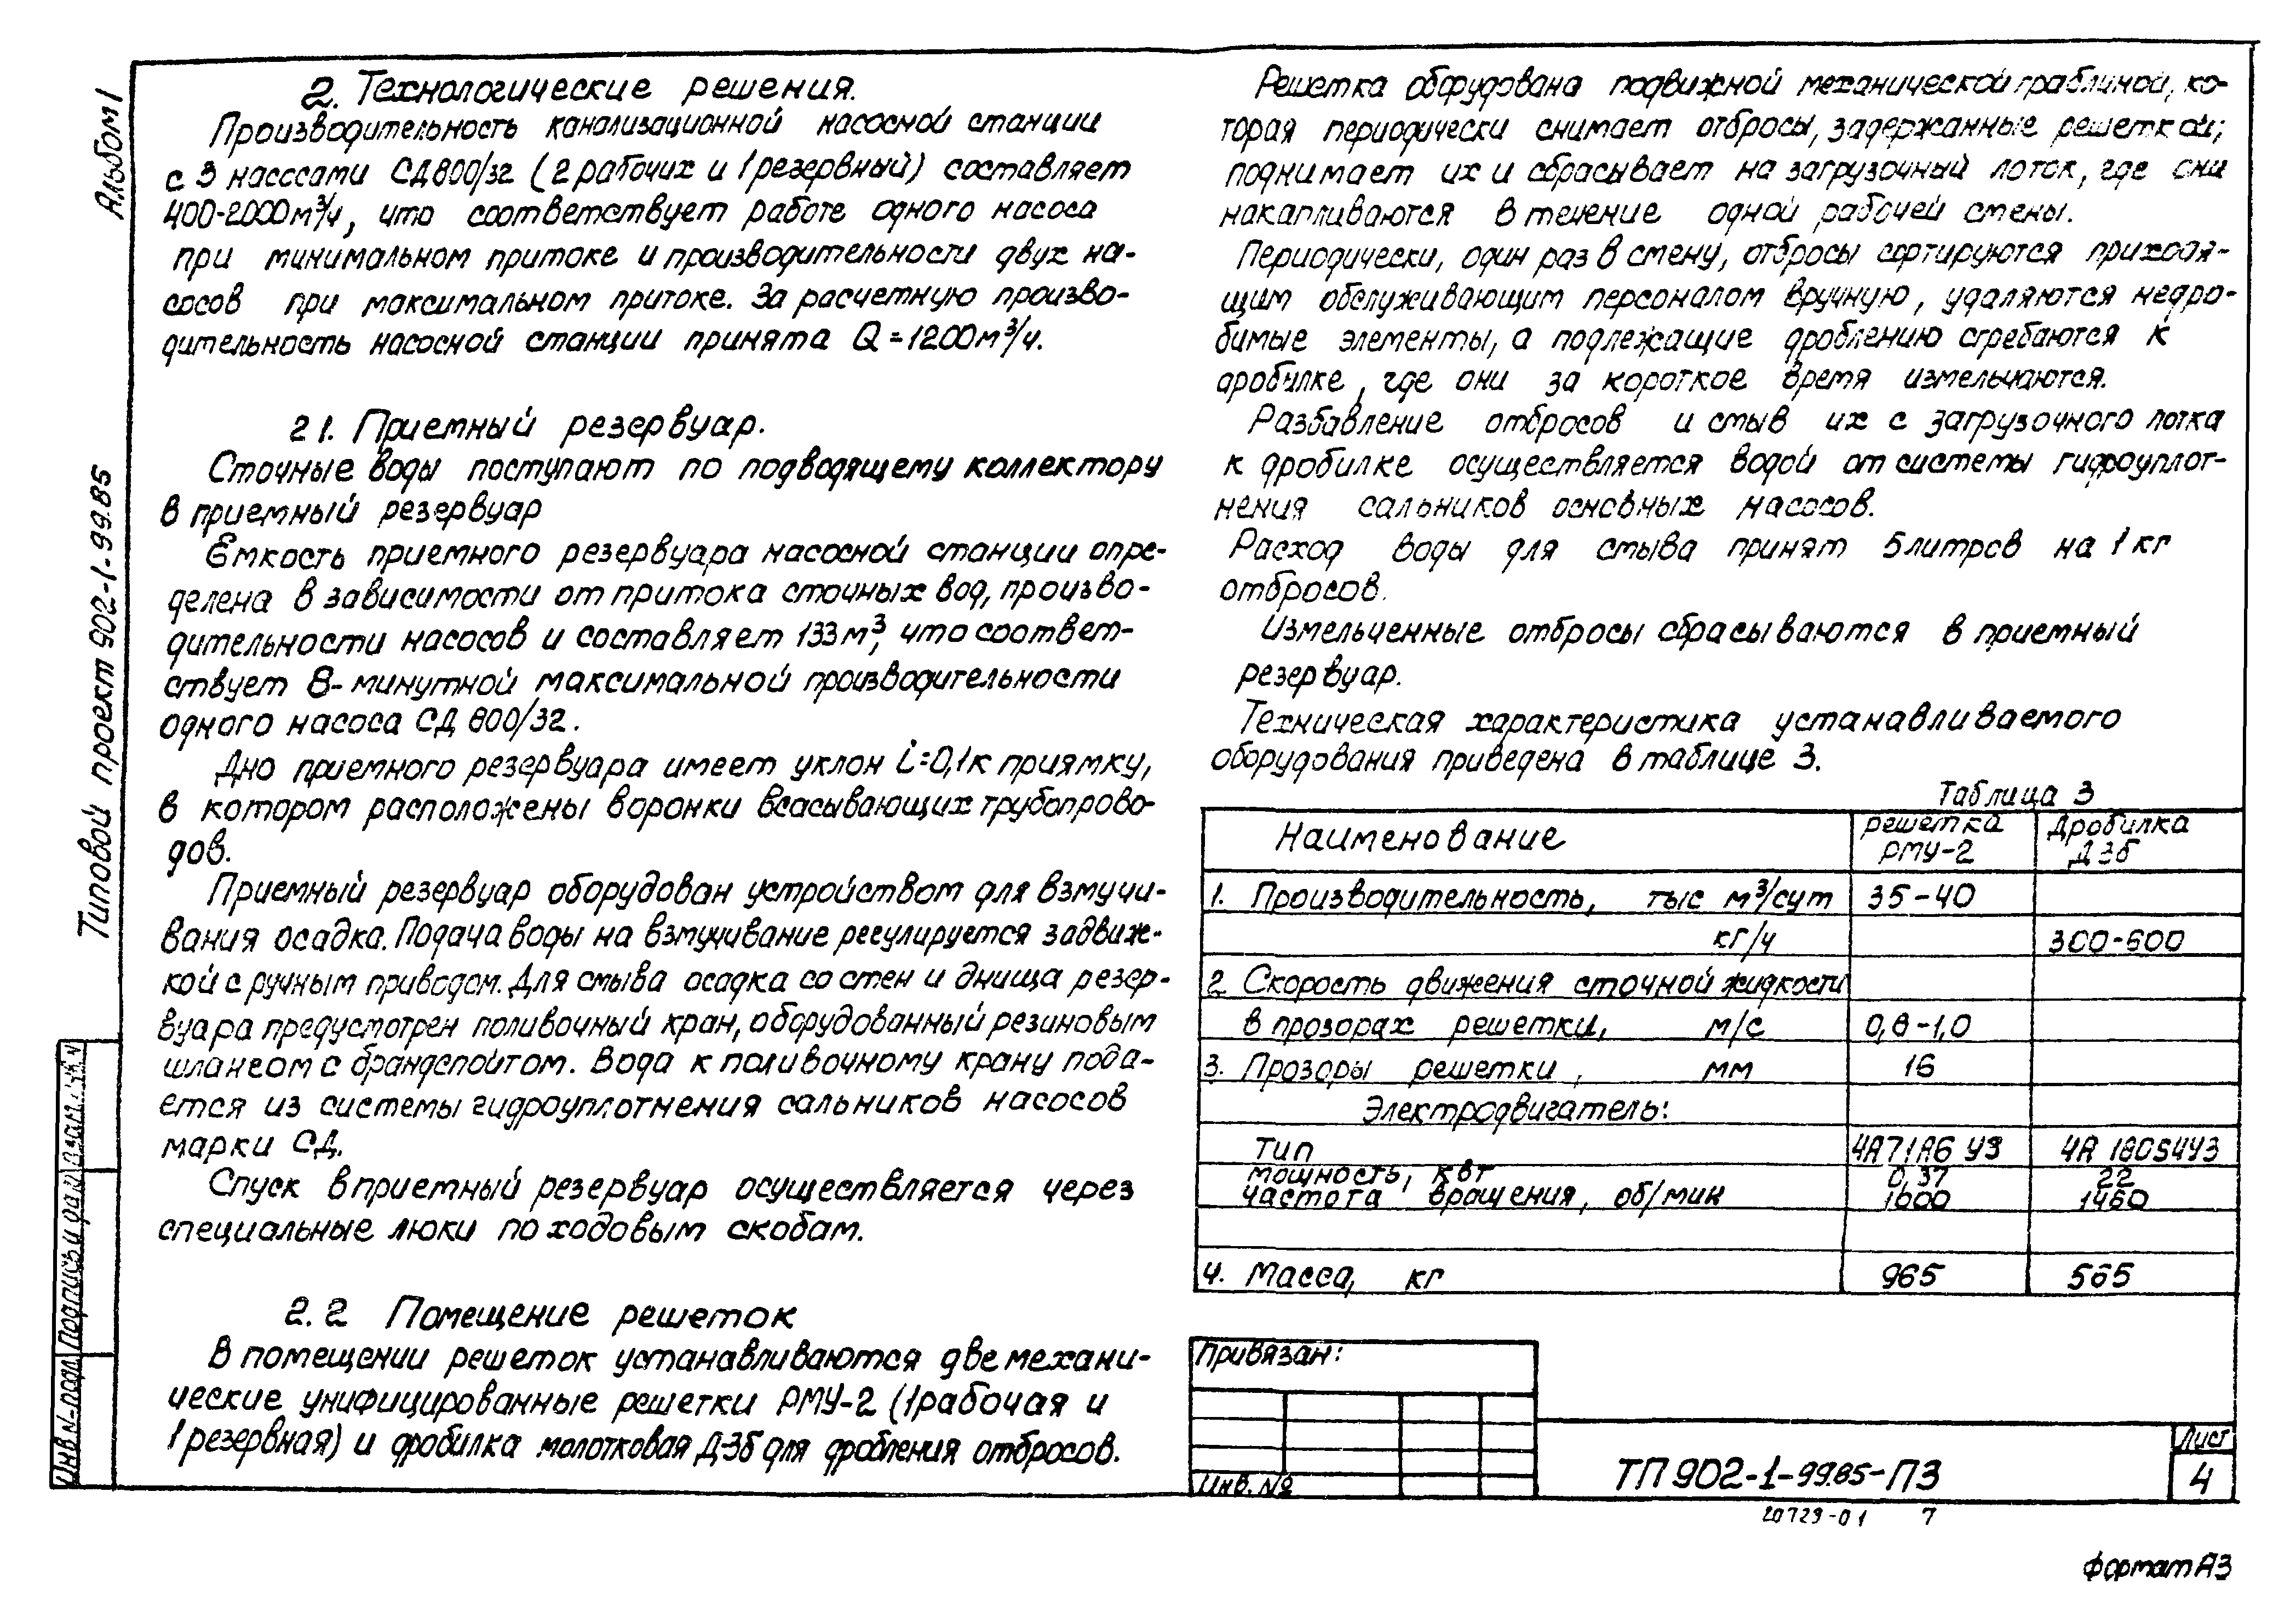 Альбом 1
Типовой проект 902-1-99.85
2. Технологические решения.
Производительность канализационной насосной станции
с 3 насосами СД800/32 (2 рабочих и 1 резервный) составляет
400-2000м³/ч, что соответствует работе одного насоса
при минимальном притоке и производительности двух на-
сосов при максимальном притоке. За расчетную произво-
дительность насосной станции принята Q=1200м³/ч.
2 1. Приемный резервуар.
Сточные воды поступают по подводящему коллектору
в приемный резервуар
Емкость приемного резервуара насосной станции опре-
делена в зависимости от притока сточных вод, произво-
дительности насосов и составляет 133м³, что соответ-
ствует 8-минутной максимальной производительности
одного насоса СД 800/32.
Дно приемного резервуара имеет уклон i=0,1 к приямку,
в котором расположены воронки всасывающих трубопрово-
дов.
Приемный резервуар оборудован устройством для взмучи-
вания осадка. Подача воды на взмучивание регулируется задвиж-
кой с ручным приводом. Для смыва осадка со стен и днища резер-
вуара предусмотрен поливочный кран, оборудованный резиновым
шлангом с брандспойтом. Вода к поливочному крану пода-
ется из системы гидроуплотнения сальников насосов
марки СД.
Спуск в приемный резервуар осуществляется через
специальные люки по ходовым скобам.
2.2 Помещение решеток
В помещении решеток устанавливаются две механи-
ческие унифицированные решетки РМУ-2 (1 рабочая и
1 резервная) и дробилка молотковая Д-3б для дробления отбросов.
Решетка оборудована подвижной механической граблиной, ко-
торая периодически снимает отбросы, задержанные решеткой;
поднимает их и сбрасывает на загрузочный лоток, где они
накапливаются в течение одной рабочей смены.
Периодически, один раз в смену, отбросы сортируются приходя-
щим обслуживающим персоналом вручную, удаляются недро-
бимые элементы, а подлежащие дроблению сгребаются к
дробилке, где они за короткое время измельчаются.
Разбавление отбросов и смыв их с загрузочного лотка
к дробилке осуществляется водой от системы гидроуплот-
нения сальников основных насосов.
Расход воды для смыва принят 5 литров на 1 кг
отбросов.
Измельченные отбросы сбрасываются в приемный
резервуар.
Техническая характеристика устанавливаемого
оборудования приведена в таблице 3.
Таблица 3
Наименование решетка РМУ-2 Дробилка Д 3б
1. Производительность, тыс м³/сут 35-40
кг/ч 300-600
2 Скорость движения сточной жидкости
в прозорах решетки, м/с 0,8-1,0
3. Прозоры решетки, мм 16
Электродвигатель:
тип 4А71А6 У3 4А 180S4У3
мощность, квт 0,37 22
частота вращения, об/мин 1000 1460
4. Масса, кг 965 565
Привязан:
Инв. №
ТП 902-1-99.85-ПЗ
Лист
4
20729-01 7
Формат А3
Инв.N-подл. Подпись и дата